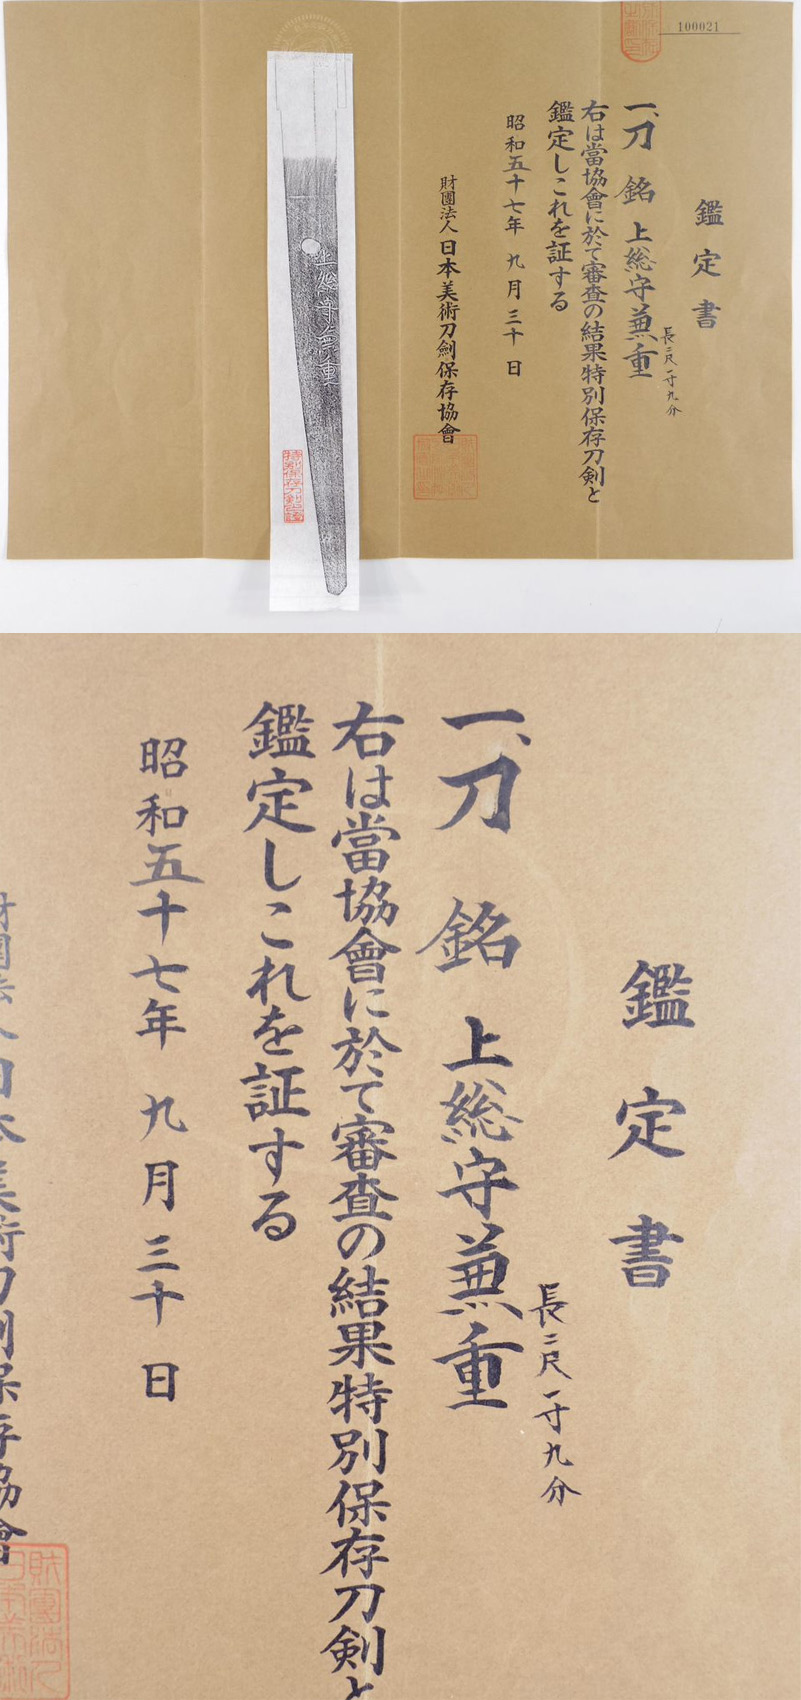 100021
鑑定書
一、刀 銘 上総守兼重
長二尺一寸九分
右は當協會に於て審査の結果特別保存刀剣と
鑑定しこれを証する
昭和五十七年 九月三十日
財團法人 日本美術刀劍保存協會
上総守兼重
特別保存刀剣之證
鑑定書
一、刀 銘 上総守兼重
長二尺一寸九分
右は當協會に於て審査の結果特別保存刀剣と
鑑定しこれを証する
昭和五十七年 九月三十日
財團法人日本美術刀剣保存協會